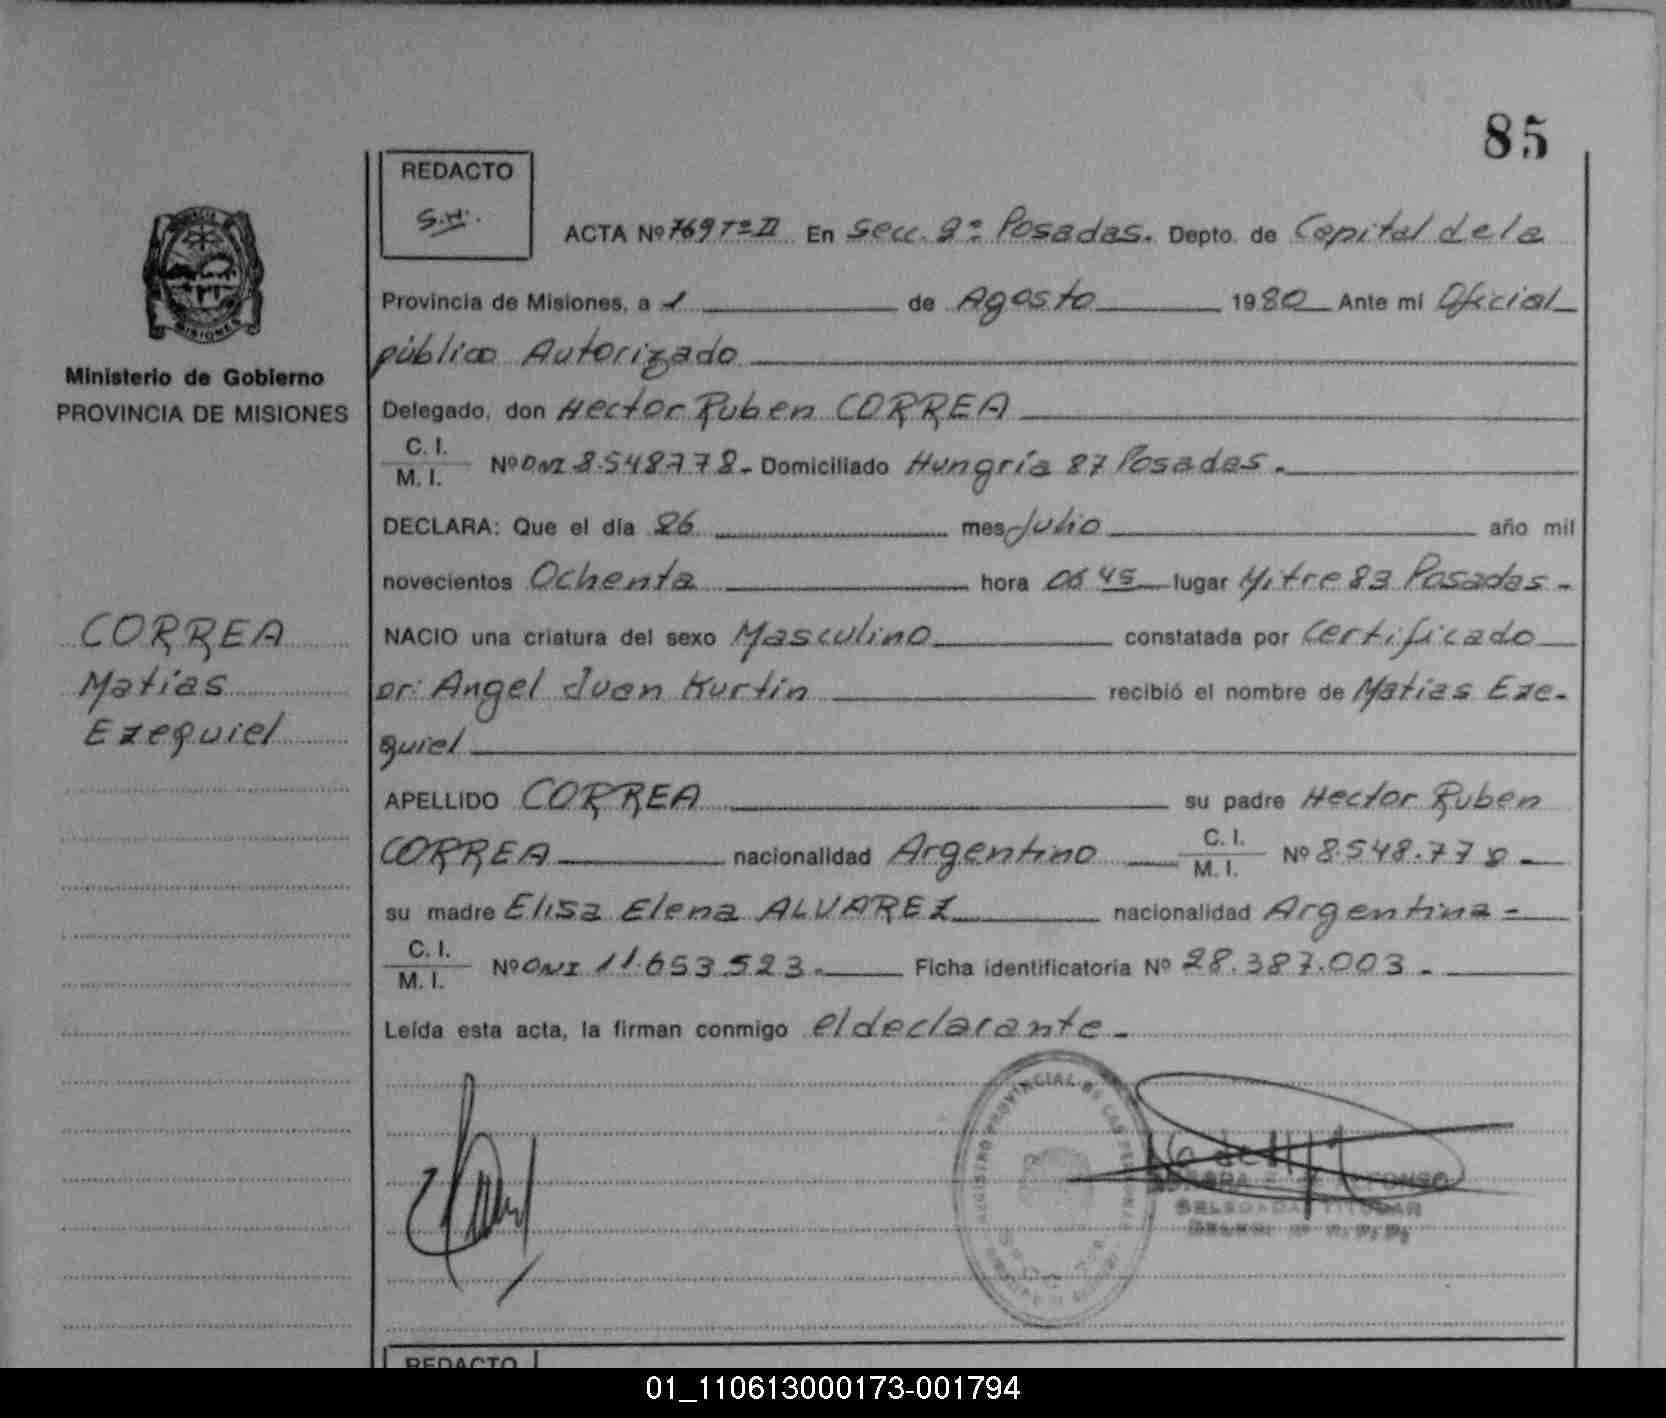 85
REDACTO
S.H.
ACTA Nº 769 Tº II En Secc. 2ª Posadas. Depto. de Capital de la
Provincia de Misiones, a 1 de Agosto 1980 Ante mi Oficial
público Autorizado
MISIONES
Ministerio de Gobierno
PROVINCIA DE MISIONES
Delegado, don Hector Ruben CORREA
C. I.
M. I. Nº DNI 8.548778- Domiciliado Hungría 87 Posadas.-
DECLARA: Que el día 26 mes Julio año mil
novecientos Ochenta hora 06 45 lugar Mitre 83 Posadas-
CORREA
Matias
Ezequiel
NACIO una criatura del sexo Masculino constatada por Certificado
Dr: Angel Juan Kurtin recibió el nombre de Matias Eze-
quiel
APELLIDO CORREA su padre Hector Ruben
CORREA nacionalidad Argentino C. I. M. I. Nº 8.548.778-
su madre Elisa Elena ALVAREZ nacionalidad Argentina-
C. I.
M. I. Nº DNI 11.653523.- Ficha identificatoria Nº 28.387.003.-
Leída esta acta, la firman conmigo el declarante.-
REGISTRO PROVINCIAL DE LAS PERSONAS
DELEGADA TITULAR
REDACTO
01_110613000173-001794